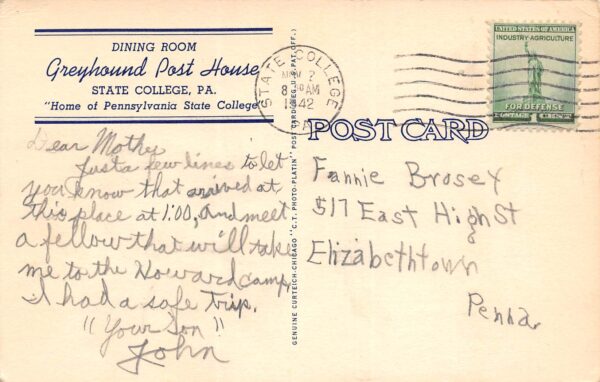 DINING ROOM
Greyhound Post House
STATE COLLEGE, PA.
"Home of Pennsylvania State College"
Dear Mother
Just a few lines to let
you know that arrived at
this place at 1:00, and meet
a fellow that will take
me to the Howard camp,
I had a safe trip.
"Your Son"
John
GENUINE CURTEICH-CHICAGO "C.T. PHOTO-PLATIN" POST CARD (REG. U.S. PAT. OFF.)
STATE COLLEGE
PA
8 30 AM
1942
UNITED STATES OF AMERICA
INDUSTRY-AGRICULTURE
FOR DEFENSE
POSTAGE 1 CENT
POST CARD
Fannie Brosey
517 East High St
Elizabethtown
Penna